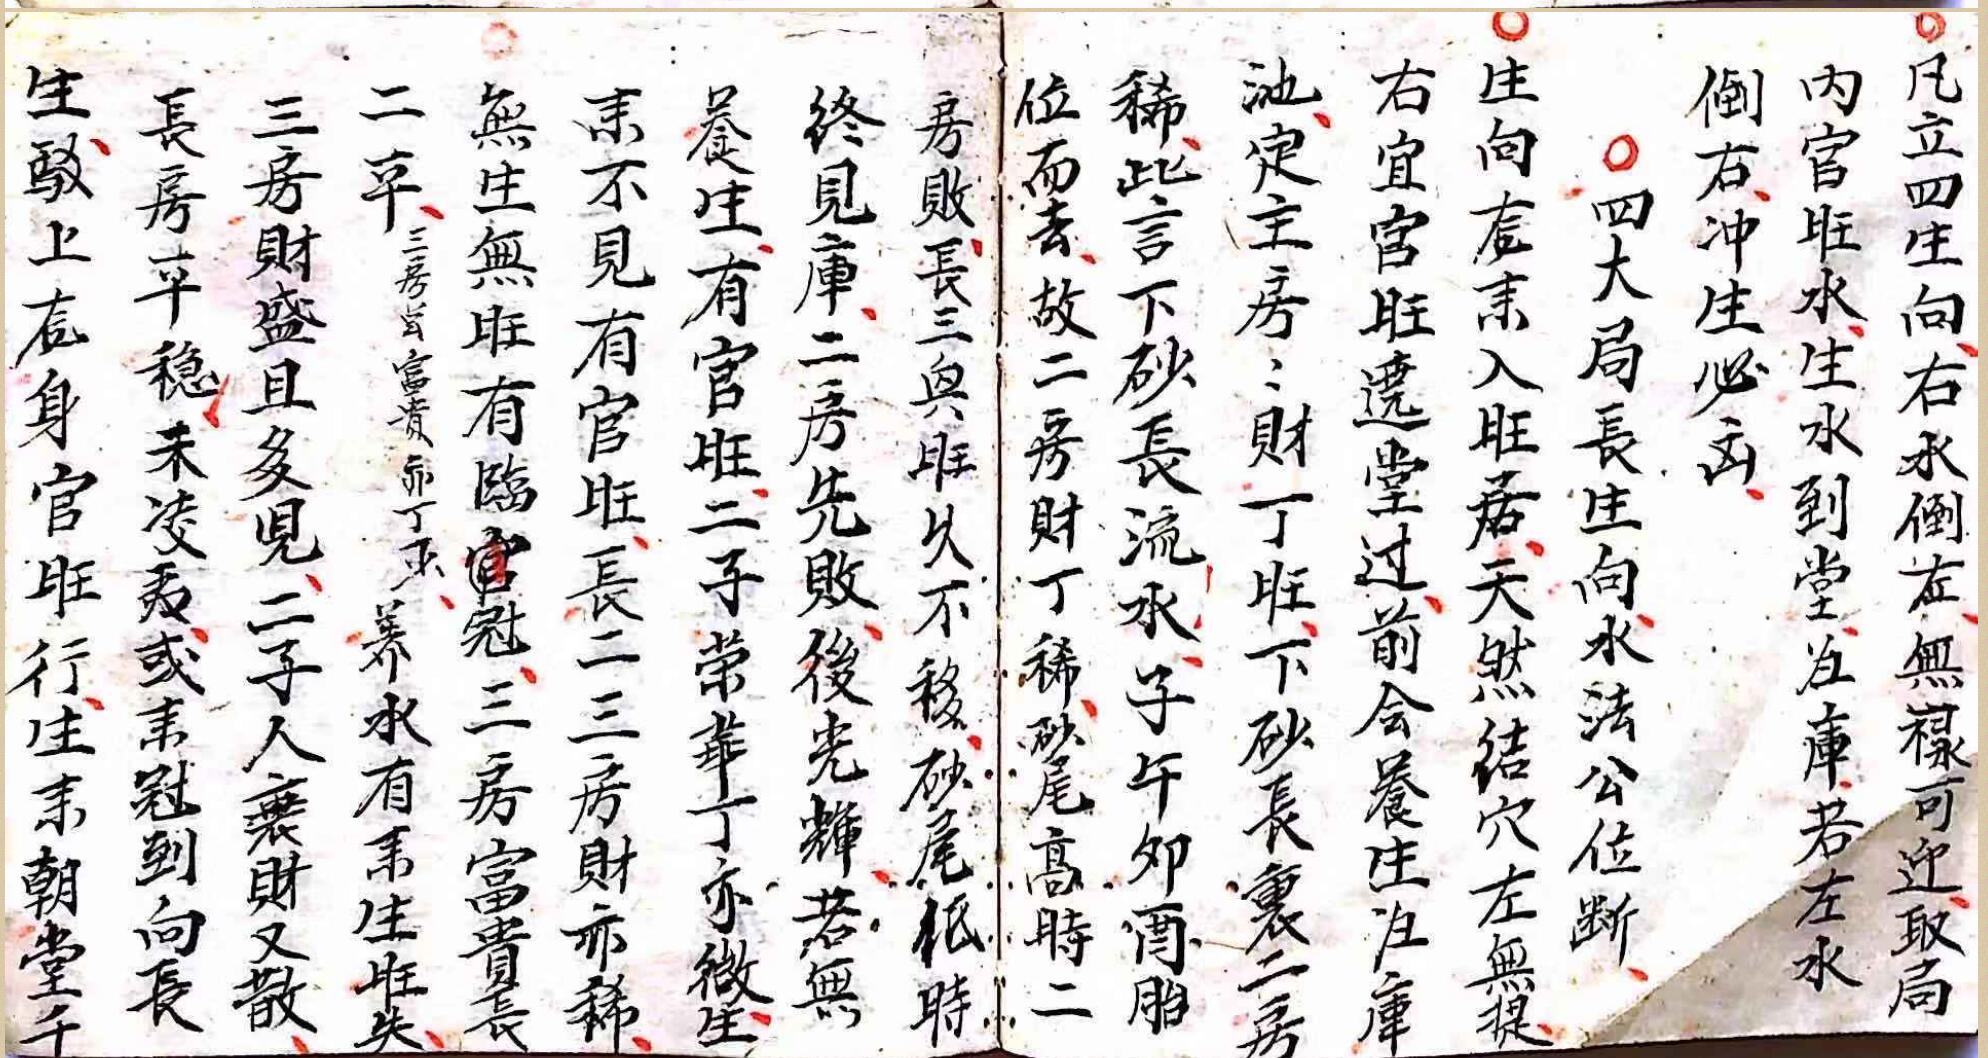 凡立四生向右水倒左無祿可迎取局
内官旺水生水到堂左庫若左水
倒右冲生必凶
四大局長生向水法公位断
生向在来入旺居天然结穴左無提
右宜官旺遶堂过前会養生注庫
池定主房〻財丁旺下砂長裏二房
稀此言下砂長流水子午卯酉胎
位而去故二房財丁稀砂尾高時二
房敗長三與旺久不移砂尾低時
終見庫二房先敗後光輝若無
養生有官旺二子荣華丁亦微生
来不見有官旺長二三房財亦稀
無生無旺有臨官冠三房富貴長
二平三房富貴亦丁养水有来生旺失
三房財盛且多児二子人丧財又散
長房平穏未凌夷或来冠到向長
生砂上在身官旺行生来朝堂千